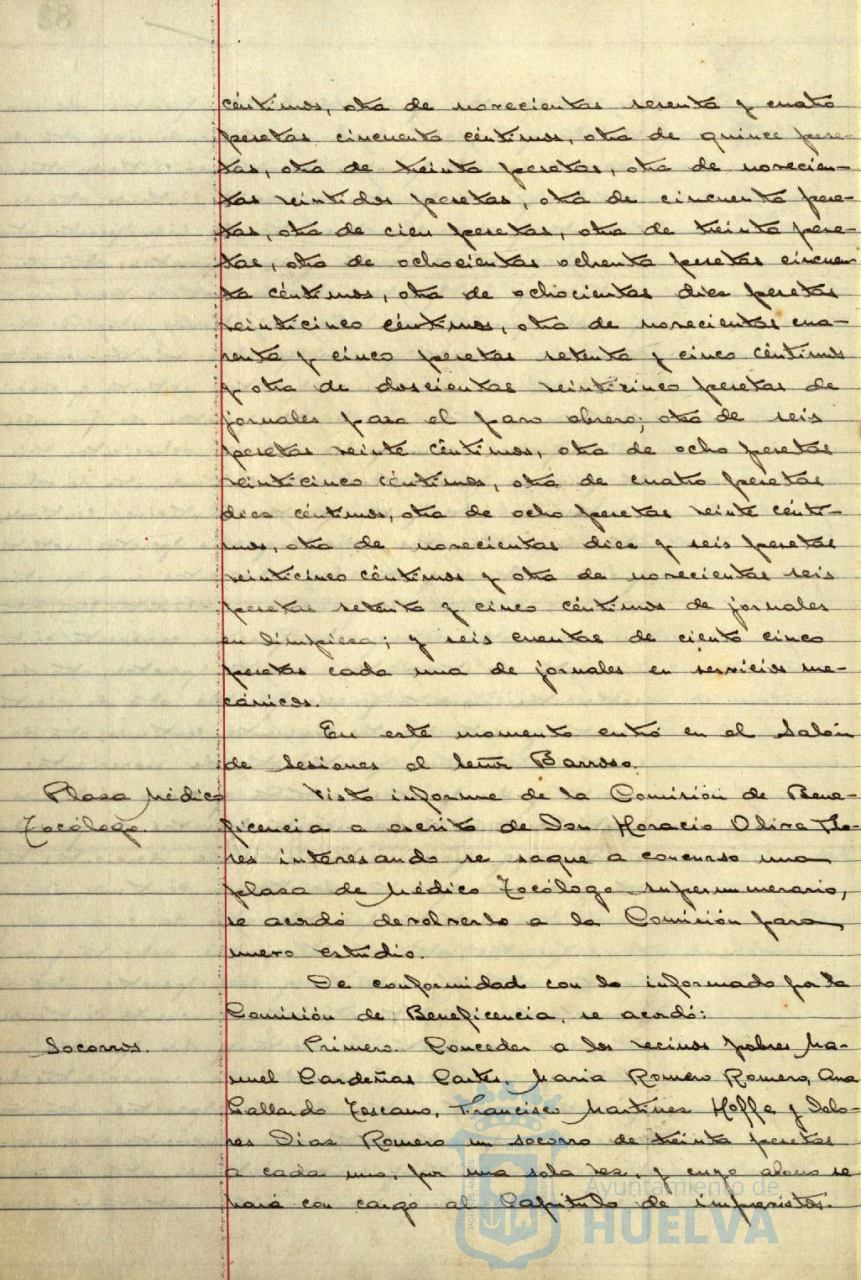 céntimos, otra de novecientas sesenta y cuatro
pesetas cincuenta céntimos, otra de quince pese-
tas, otra de treinta pesetas, otra de novecien-
tas veintidos pesetas, otra de cincuenta pese-
tas, otra de cien pesetas, otra de treinta pese-
tas, otra de ochocientas ochenta pesetas cincuen-
ta céntimos, otra de ochocientas diez pesetas
veinticinco céntimos, otra de novecientas cua-
renta y cinco pesetas setenta y cinco céntimos
y otra de doscientas veinticinco pesetas de
jornales para el paro obrero; otra de seis
pesetas veinte céntimos, otra de ocho pesetas
veinticinco céntimos, otra de cuatro pesetas
diez céntimos, otra de ocho pesetas veinte cénti-
mos, otra de novecientas diez y seis pesetas
veinticinco céntimos y otra de novecientas seis
pesetas setenta y cinco céntimos de jornales
en limpieza; y seis cuentas de ciento cinco
pesetas cada una de jornales en servicios me-
cánicos.
En este momento entró en el Salón
de Sesiones el Señor Barroso.
Plaza Médico
Tocólogo.
Visto informe de la Comisión de Bene-
ficencia a escrito de Don Horacio Oliva Flo-
res interesando se saque a concurso una
plaza de Médico Tocólogo supernumerario,
se acordó devolverlo a la Comisión para
nuevo estudio.
De conformidad con lo informado por la
Comisión de Beneficencia, se acordó:
Socorros.
Primero. Conceder a los vecinos pobres Ma-
nuel Cardeñas Cartes, Maria Romero Romero, Ana
Gallardo Toscano, Francisco Martinez Hoffe y Dolo-
res Diaz Romero un socorro de treinta pesetas
a cada uno, por una sola vez, y cuyo abono se
hará con cargo al Capitulo de imprevistos.
Ayuntamiento de
HUELVA